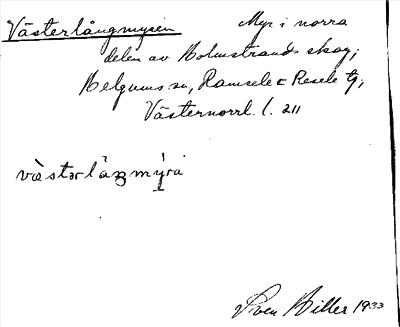 Västerlångmyren Myr i norra
delen av Holmstrands skog,
Helgums sn, Ramsele o Resele tg,
Västernorrl. l. 211
væstərlåŋmýra
Sven Hiller 1933